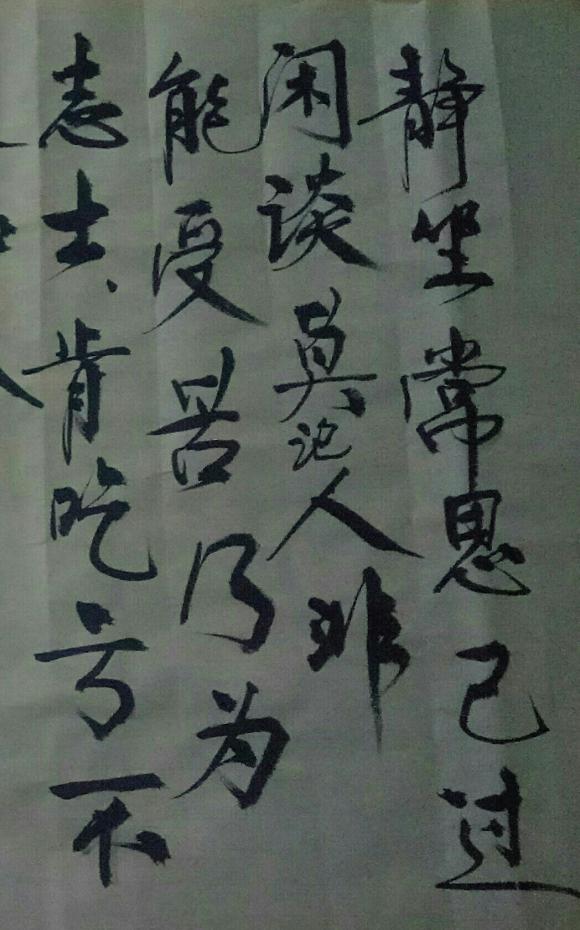 静坐常思己过
闲谈莫记人非
能受苦乃为
志士肯吃亏不